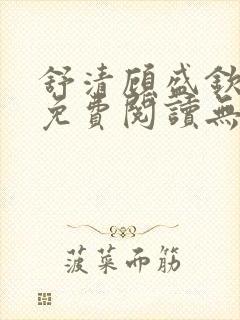 舒清顧盛欽
免費閱讀無
菠菜而筋